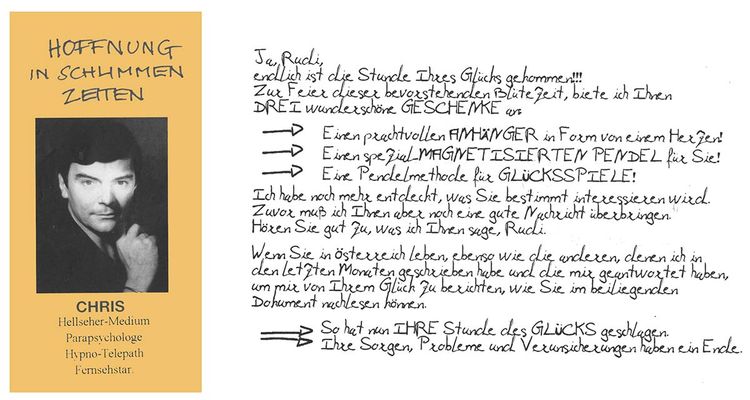 HOFFNUNG
IN SCHLIMMEN
ZEITEN
CHRIS
Hellseher-Medium
Parapsychologe
Hypno-Telepath
Fernsehstar.
Ja, Rudi,
endlich ist die Stunde Ihres Glücks gekommen!!!
Zur Feier dieser bevorstehenden Blütezeit, biete ich Ihnen
DREI wunderschöne GESCHENKE an:
Einen prachtvollen ANHÄNGER in Form von einem Herzen!
Einen spezial MAGNETISIERTEN PENDEL für Sie!
Eine Pendelmethode für GLÜCKSSPIELE!
Ich habe noch mehr entdeckt, was Sie bestimmt interessieren wird.
Zuvor muß ich Ihnen aber noch eine gute Nachricht überbringen.
Hören Sie gut zu, was ich Ihnen sage, Rudi.
Wenn Sie in Österreich leben, ebenso wie die anderen, denen ich in
den letzten Monaten geschrieben habe und die mir geantwortet haben,
um mir von Ihrem Glück zu berichten, wie Sie im beiliegenden
Dokument nachlesen können.
So hat nun IHRE Stunde des GLÜCKS geschlagen.
Ihre Sorgen, Probleme und Verunsicherungen haben ein Ende.